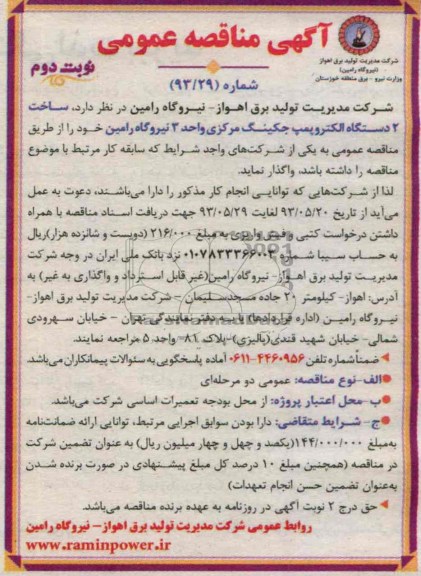 آگهی مناقصه عمومی
شرکت مدیریت تولید برق اهواز
(نیروگاه رامین)
وزارت نیرو - برق منطقه خوزستان
نوبت دوم
شماره (۹۳/۲۹)
شرکت مدیریت تولید برق اهواز- نیروگاه رامین در نظر دارد، ساخت
۲ دستگاه الکتروپمپ جکینگ مرکزی واحد ۳ نیروگاه رامین خود را از طریق
مناقصه عمومی به یکی از شرکت‌های واجد شرایط که سابقه کار مرتبط با موضوع
مناقصه را داشته باشد، واگذار نماید.
لذا از شرکت‌هایی که توانایی انجام کار مذکور را دارا می‌باشند، دعوت به عمل
می‌آید از تاریخ ۹۳/۰۵/۲۰ لغایت ۹۳/۰۵/۲۹ جهت دریافت اسناد مناقصه با همراه
داشتن درخواست کتبی و فیش واریزی به مبلغ ۲۱۶/۰۰۰ (دویست و شانزده هزار)ریال
به حساب سیبا شماره ۰۱۰۷۸۳۳۳۶۶۰۰۳ نزد بانک ملی ایران در وجه شرکت
مدیریت تولید برق اهواز- نیروگاه رامین(غیر قابل استرداد و واگذاری به غیر) به
آدرس: اهواز- کیلومتر ۲۰ جاده مسجدسلیمان - شرکت مدیریت تولید برق اهواز-
نیروگاه رامین (اداره قراردادها) یا به دفتر نمایندگی تهران - خیابان سهروردی
شمالی- خیابان شهید قندی(پالیزی)-پلاک ۸۱- واحد ۵ مراجعه نمایند.
ضمناً شماره تلفن ۴۴۶۰۹۵۶-۰۶۱۱ آماده پاسخگویی به سئوالات پیمانکاران می‌باشد.
الف-نوع مناقصه: عمومی دو مرحله‌ای
ب-محل اعتبار پروژه: از محل بودجه تعمیرات اساسی شرکت می‌باشد.
ج- شرایط متقاضی: دارا بودن سوابق اجرایی مرتبط، توانایی ارائه ضمانت‌نامه
به‌مبلغ ۱۴۴/۰۰۰/۰۰۰(یکصد و چهل و چهار میلیون ریال) به عنوان تضمین شرکت
در مناقصه (همچنین مبلغ ۱۰ درصد کل مبلغ پیشنهادی در صورت برنده شدن
به‌عنوان تضمین حسن انجام تعهدات)
حق درج ۲ نوبت آگهی در روزنامه به عهده برنده مناقصه می‌باشد.
روابط عمومی شرکت مدیریت تولید برق اهواز- نیروگاه رامین
www.raminpower.ir